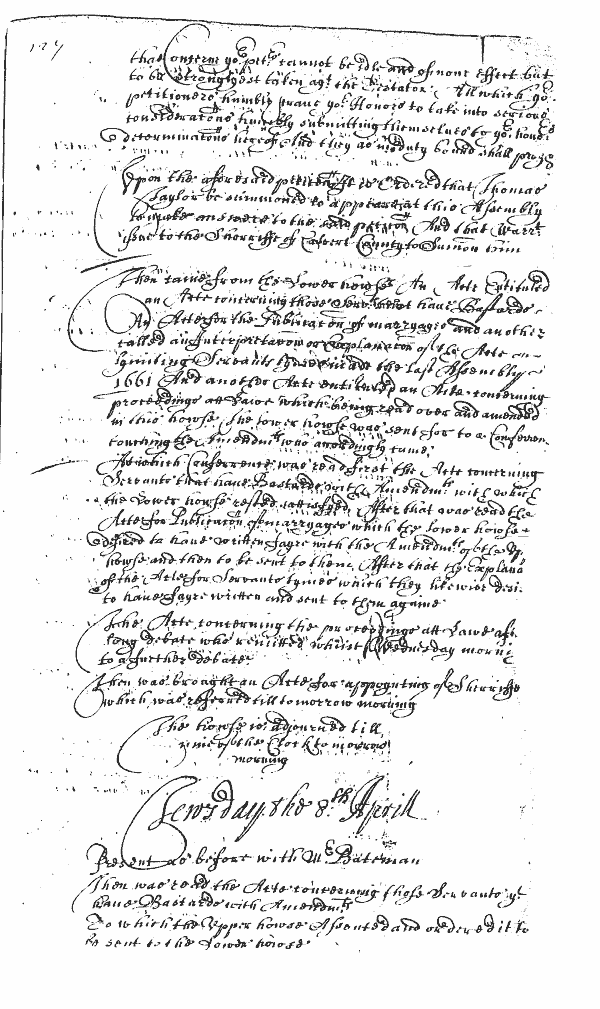 127
that Conterne yor petrs cannot be idle and of none effect but
to be strongliest taken agt the Dictator. All which yor
petitioners humbly prave yor Honors to take into serious
consideratons humbly submitting themselves to yor honors
determinatons hereof And they as in duty bound shall pray &
Upon the aforesaid petition It is Ordered that Thomas
Taylor be summoned to appeare att this Assembly
to make answere to the said petition And that Warrt
issue to the Sherriffe of Calvert County to Sumon him
Then came from the Lower howse An Acte Entituled
an Acte concerning those Servants that have Bastards
An Acte for the Publicaton of marryages and another
called an Interpretaton or Explanaton of the Acte
limiting Servants tymes made the last Assembly
1661 And another Acte entituled an Acte concerning
proceedings att Lawe which being read over and amended
in this howse The lower howse was sent for to a Conferen
touching the Amendmts who accordingly came
At which Conferrence was read first the Acte concerning
Servants that have Bastards with Amendmts with which
the Lower howse rested satisfyed. After that was read the
Acte for Publicaton of marryages which the lower howse
desired to have written fayre with the Amendmts of the Upp
howse and then to be sent to them. After that the Explana
of the Acte for Servants tymes which they likewise desi
to have fayre written and sent to them againe
The Acte concerning the proceedings att Lawe aft
long debate was remitted untill Wednesday morni
to a further debate
Then was brought an Acte for appoynting of Sherriffs
which was referred till tomorrow morning
The howse is adjourned till
nine of the Clock tomorrow
morning
Tewsday the 8th Aprill
Present as before with Mr Bateman
Then was read the Acte concerning those Servants yt
have Bastards with Amendmts
To which the Upper howse Assented and ordered it to
be sent to the Lower howse